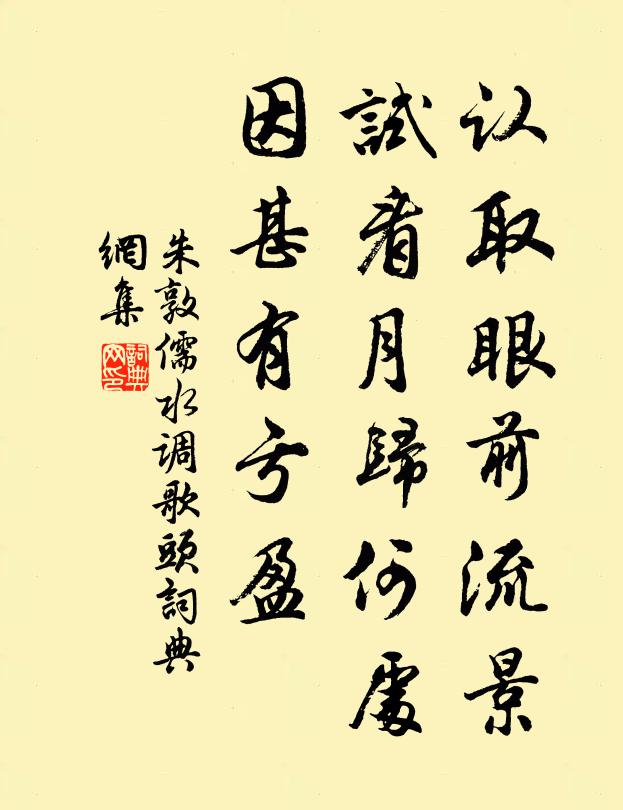 认取眼前流景
試看月歸何處
因甚有亏盈
朱敦儒水调歌頭詞典
網集
詞典
网印